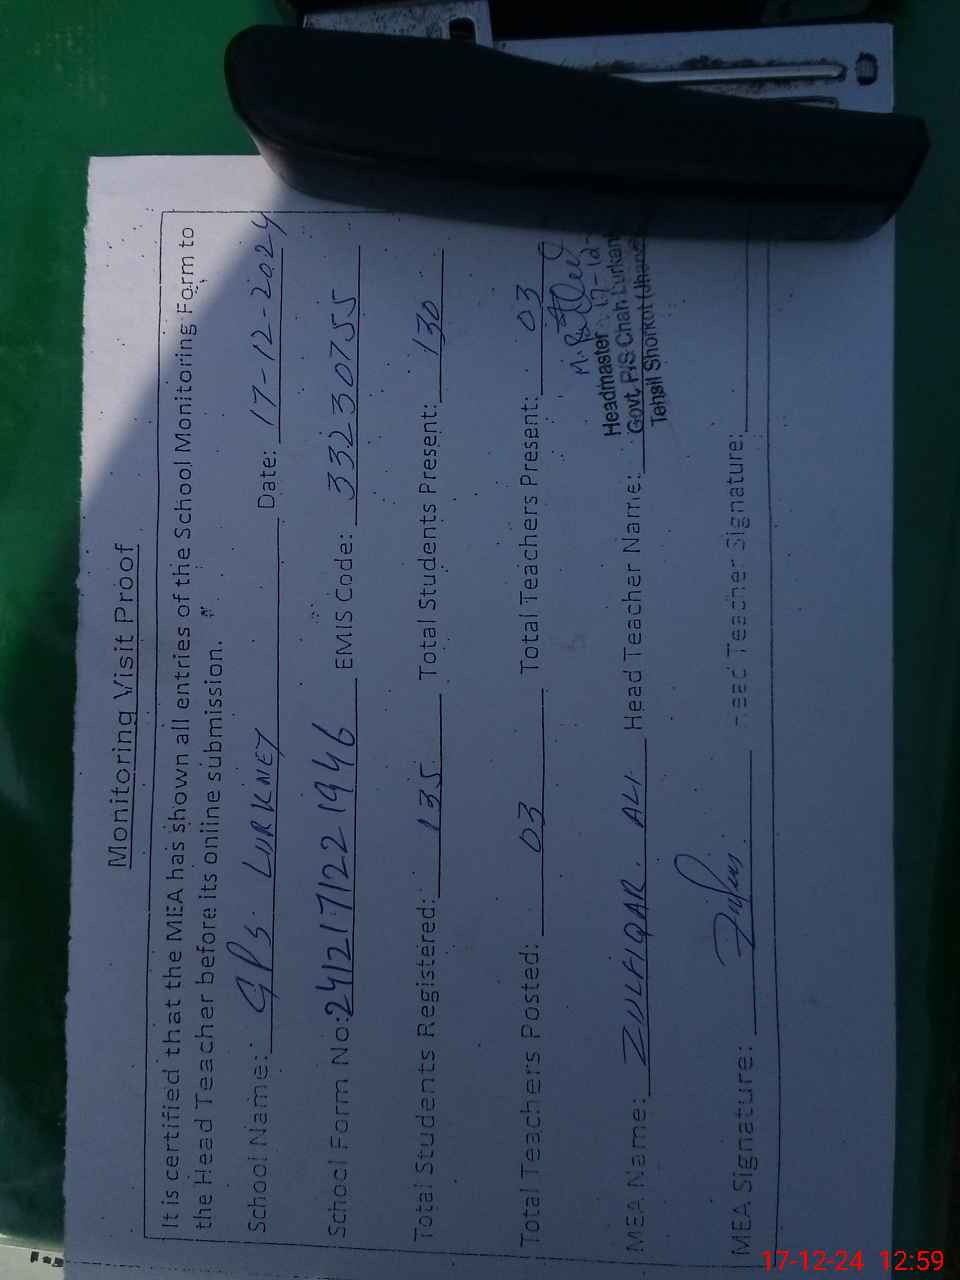 Monitoring Visit Proof
It is certified that the MEA has shown all entries of the School Monitoring Form to
the Head Teacher before its online submission.
School Name: GPS. LURKNEY Date: 17-12-2024
School Form No: 2412171221946 EMIS Code: 33230755
Total Students Registered: 135 Total Students Present: 130
Total Teachers Posted: 03 Total Teachers Present: 03
MEA Name: ZULFIQAR. ALI Head Teacher Name:
Headmaster
Govt, P/S Chah Lurkan
Tehsil Shorkot (Jhang
MEA Signature: Head Teacher Signature:
17-12-24 12:59